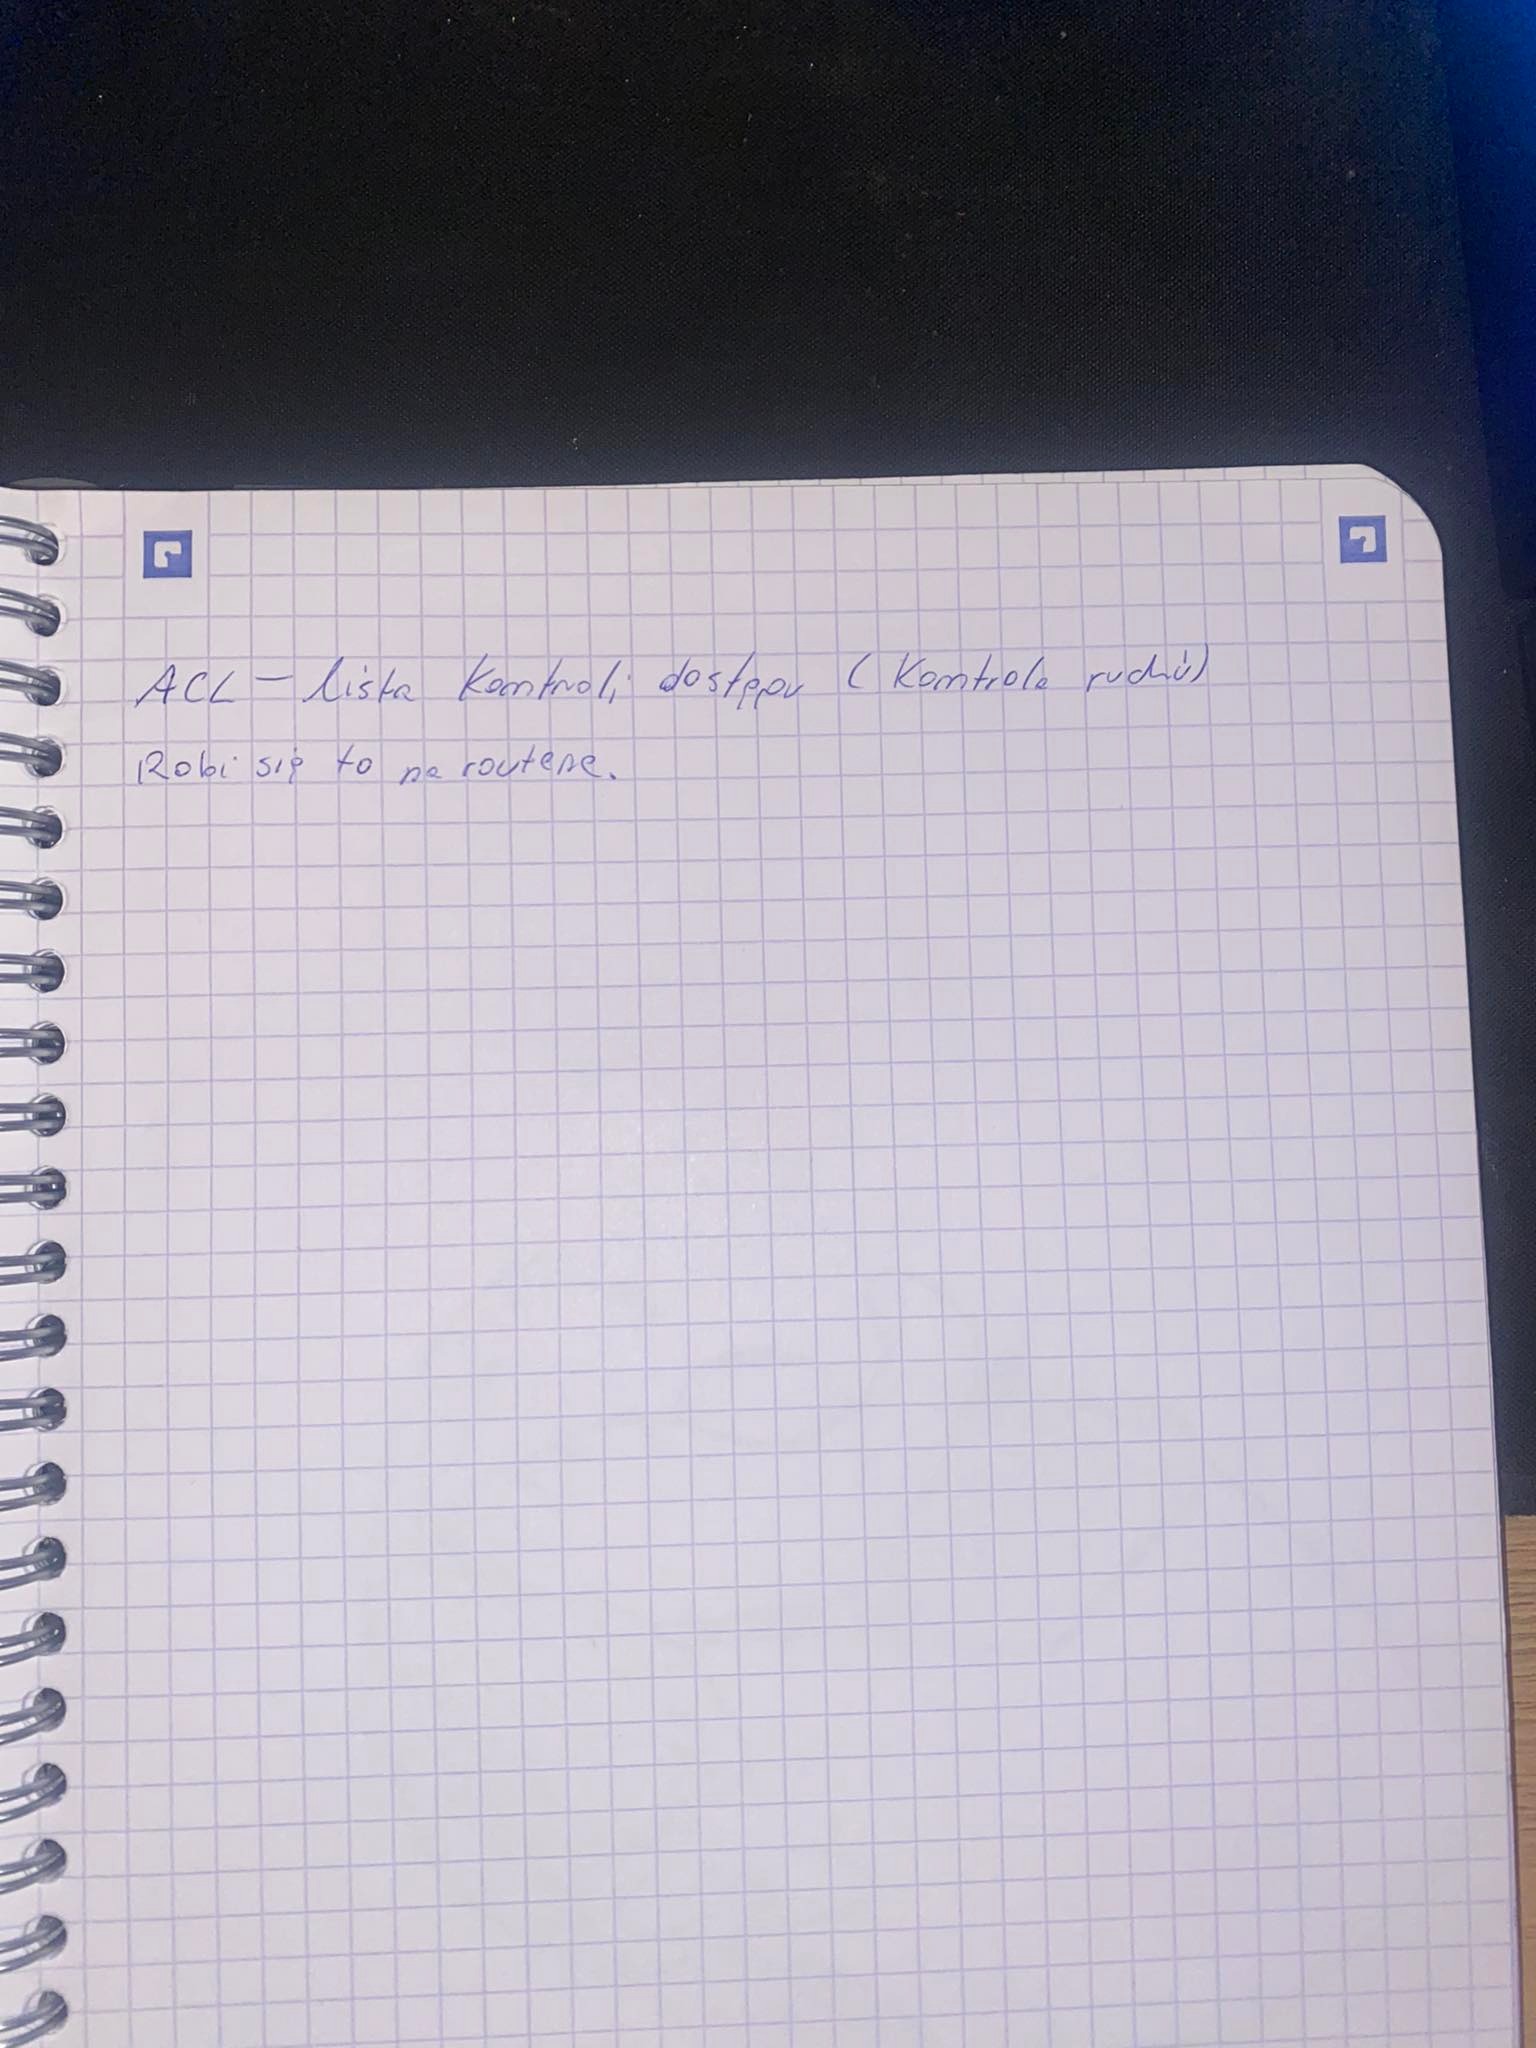 ACL – lista kontroli dostępu (kontrola ruchu)
Robi się to na routerze.